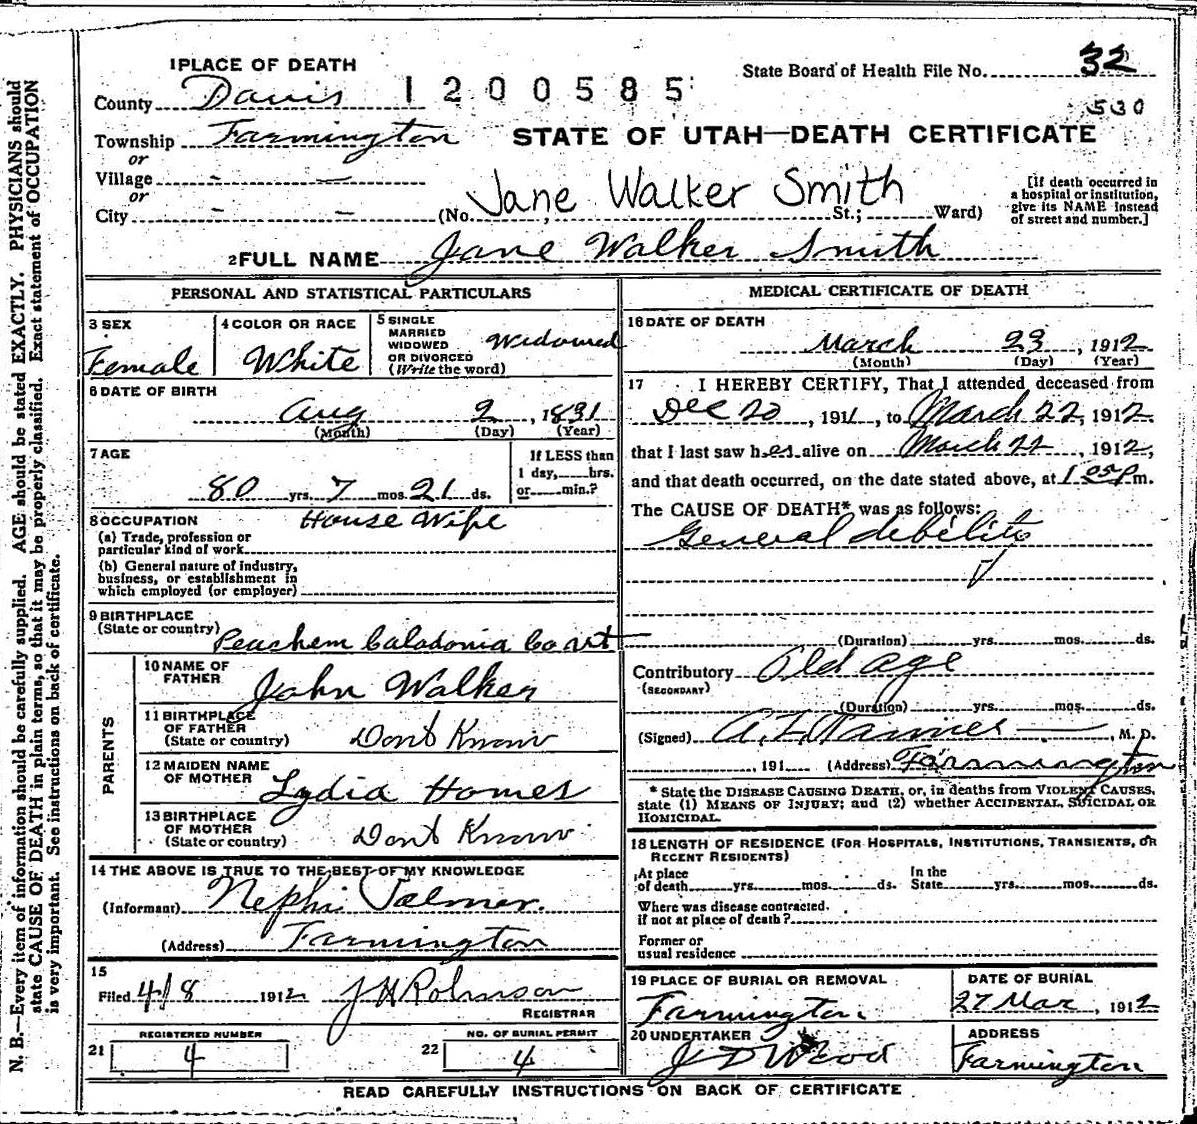 1 PLACE OF DEATH
State Board of Health File No. 32
County Davis 1200585
530
Township Farmington
STATE OF UTAH—DEATH CERTIFICATE
or
Village - —
or
City - —
(No. Jane Walker Smith St.; Ward)
[If death occurred in a hospital or institution, give its NAME instead of street and number.]
2 FULL NAME Jane Walker Smith
PERSONAL AND STATISTICAL PARTICULARS
3 SEX
Female
4 COLOR OR RACE
White
5 SINGLE
MARRIED
WIDOWED
OR DIVORCED
(Write the word)
Widowed
6 DATE OF BIRTH
Aug 2, 1831
(Month) (Day) (Year)
7 AGE
80 yrs. 7 mos. 21 ds.
If LESS than
1 day, hrs.
or min.?
8 OCCUPATION House Wife
(a) Trade, profession or
particular kind of work
(b) General nature of industry,
business, or establishment in
which employed (or employer)
9 BIRTHPLACE
(State or country) Peachem Caladonia Co
PARENTS
10 NAME OF
FATHER John Walker
11 BIRTHPLACE
OF FATHER
(State or country) Dont Know
12 MAIDEN NAME
OF MOTHER Lydia Homes
13 BIRTHPLACE
OF MOTHER
(State or country) Dont Know
14 THE ABOVE IS TRUE TO THE BEST OF MY KNOWLEDGE
(Informant) Nephi Palmer.
(Address) Farmington
15
Filed 4/8 1912 J H Robinson
REGISTRAR
REGISTERED NUMBER
21 4
NO. OF BURIAL PERMIT
22 4
MEDICAL CERTIFICATE OF DEATH
16 DATE OF DEATH
March 23, 1912
(Month) (Day) (Year)
17 I HEREBY CERTIFY, That I attended deceased from
Dec 20, 1911, to March 22, 1912.
that I last saw her alive on March 22, 1912,
and that death occurred, on the date stated above, at 1 05 P m.
The CAUSE OF DEATH* was as follows:
General debility
(Duration) yrs. mos. ds.
Contributory Old age
(SECONDARY)
(Duration) yrs. mos. ds.
(Signed) A. L. Tanner — , M. D.
, 191 (Address) Farmington
* State the DISEASE CAUSING DEATH, or, in deaths from VIOLENT CAUSES,
state (1) MEANS OF INJURY; and (2) whether ACCIDENTAL, SUICIDAL OR
HOMICIDAL.
18 LENGTH OF RESIDENCE (FOR HOSPITALS, INSTITUTIONS, TRANSIENTS, OR
RECENT RESIDENTS)
At place
of death yrs. mos. ds.
In the
State yrs. mos. ds.
Where was disease contracted.
if not at place of death?
Former or
usual residence
19 PLACE OF BURIAL OR REMOVAL
Farmington
DATE OF BURIAL
27 Mar, 1912
20 UNDERTAKER
J D Wood
ADDRESS
Farmington
READ CAREFULLY INSTRUCTIONS ON BACK OF CERTIFICATE
N. B.—Every item of information should be carefully supplied. AGE should be stated EXACTLY. PHYSICIANS should
state CAUSE OF DEATH in plain terms, so that it may be properly classified. Exact statement of OCCUPATION
is very important. See instructions on back of certificate.